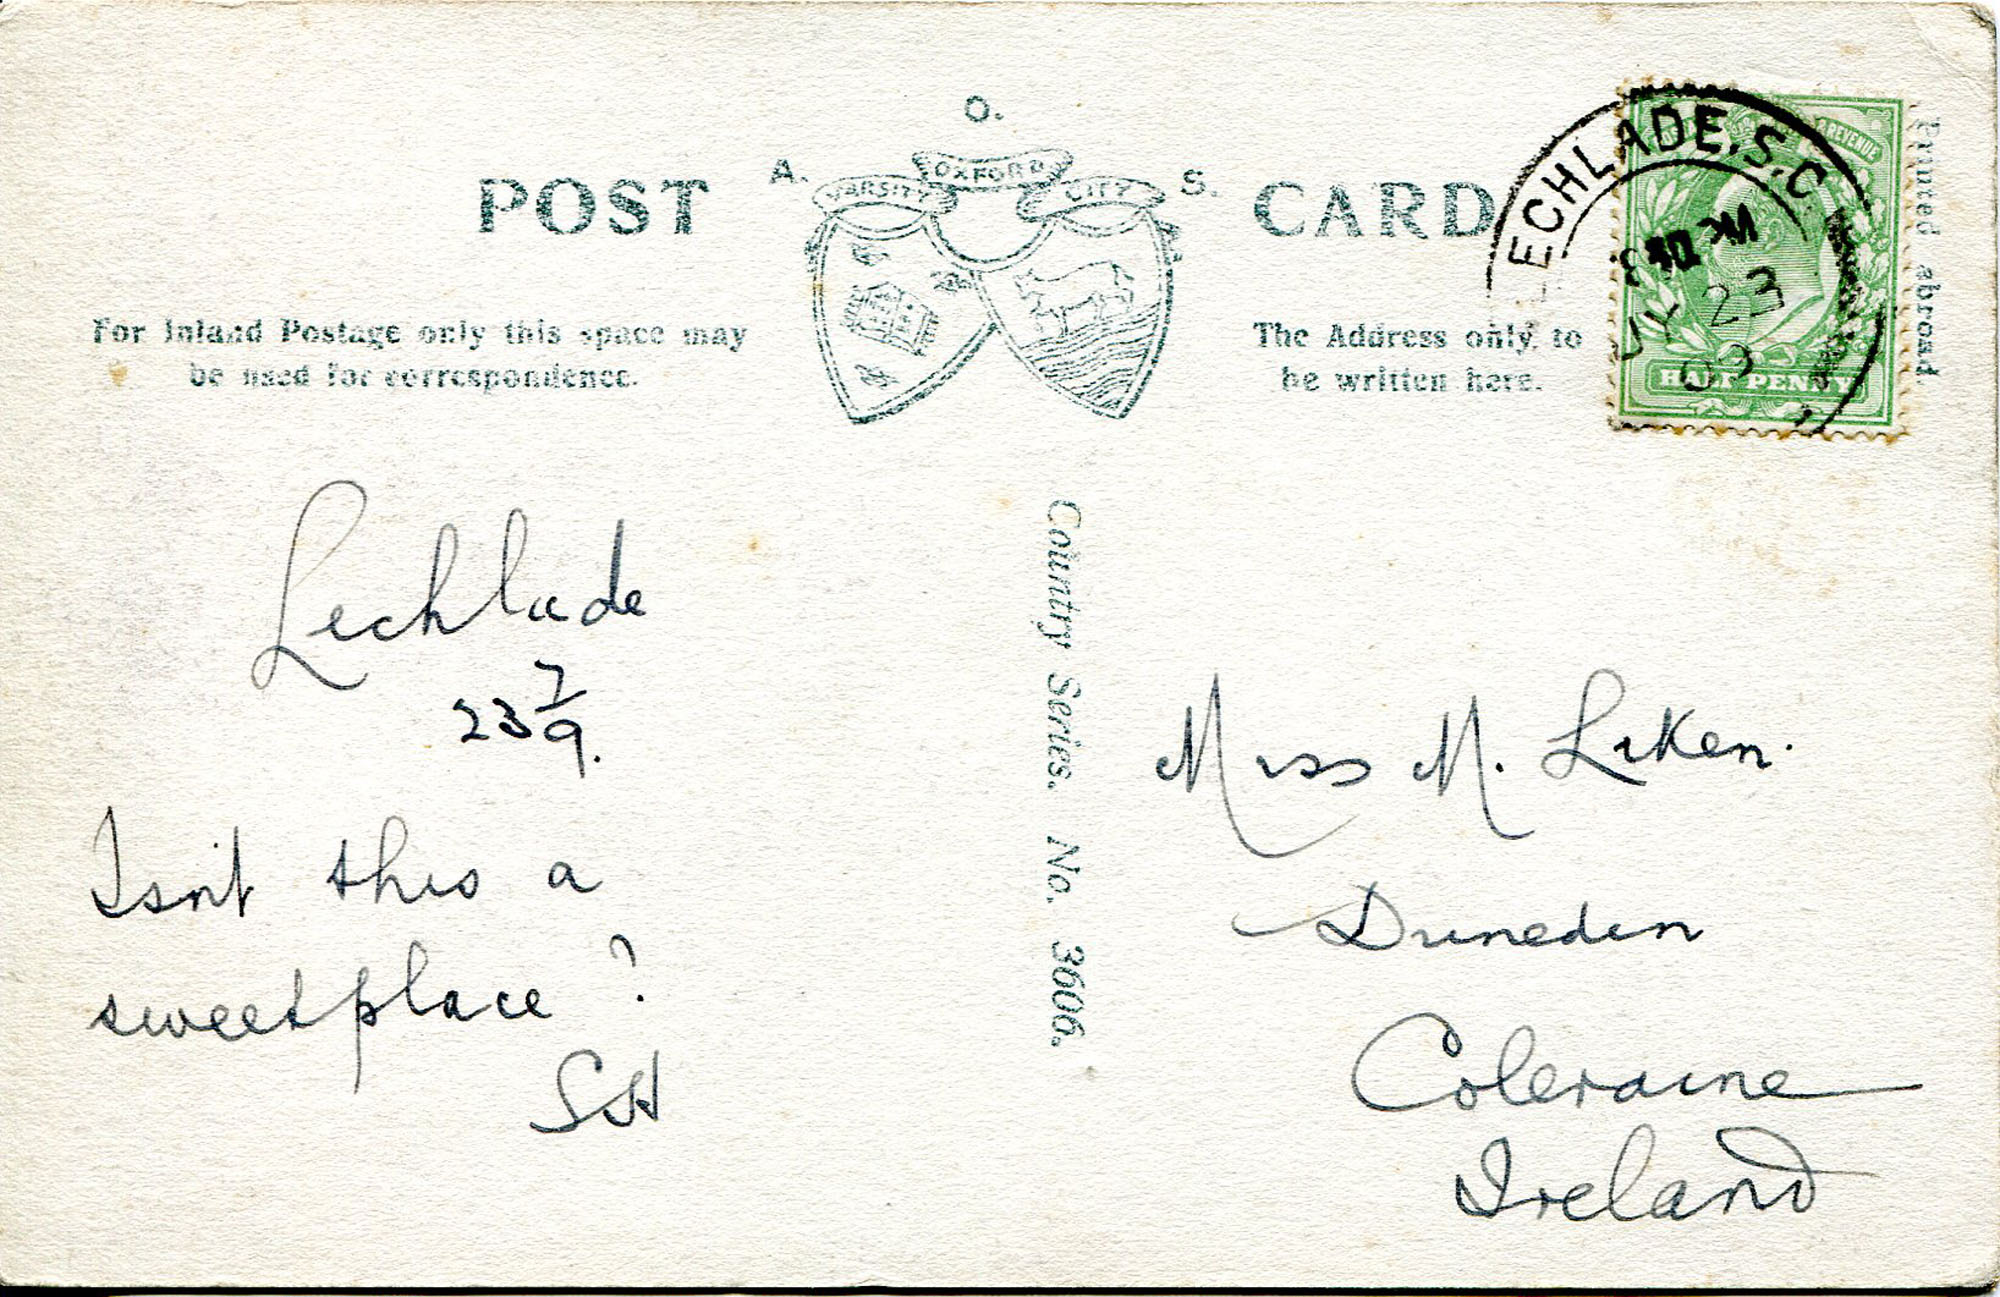 POST CARD
A. O. S.
VARSITY OXFORD CITY
For Inland Postage only this space may
be used for correspondence.
The Address only to
be written here.
ECHLADE. S.O
23
09
REVENUE
HALF PENNY
Printed abroad.
Lechlade
23 7/9.
Isn't this a
sweet place?
SH
Country Series. No. 3606.
Miss M. Liken.
Dunedin
Coleraine
Ireland